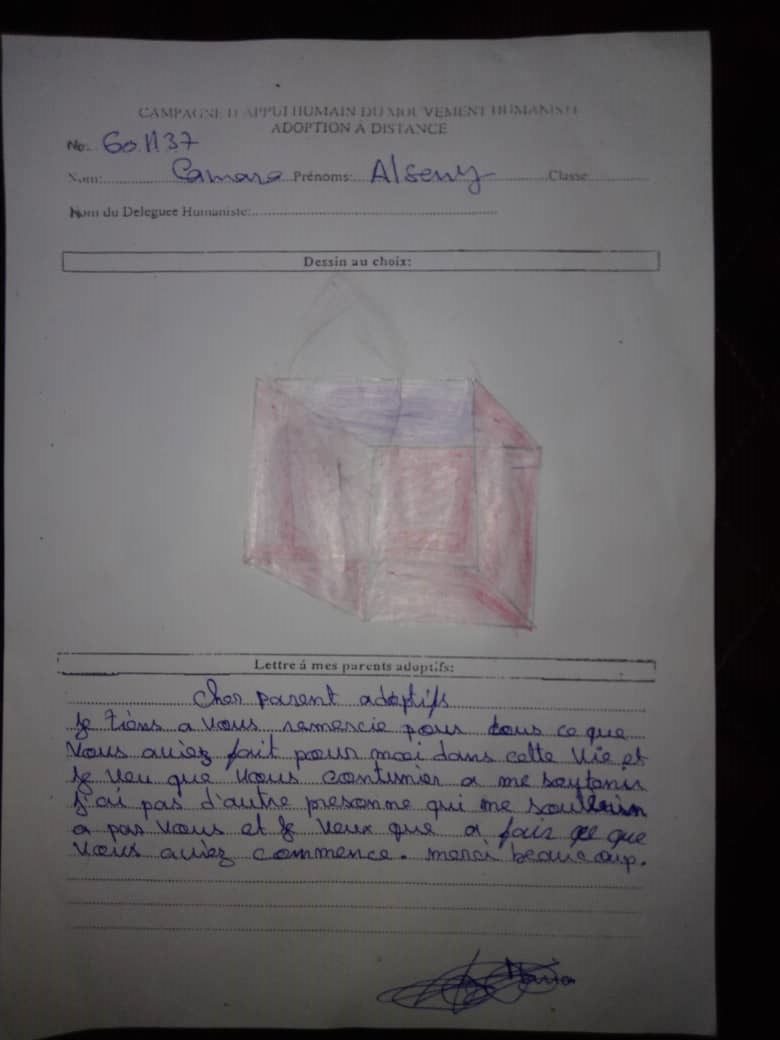 CAMPAGNE D'APPUI HUMAIN DU MOUVEMENT HUMANISTE
ADOPTION A DISTANCE
No:
Nom: Camara Prénoms: Alseny Classe
Nom du Deleguee Humaniste:
Dessin au choix:
Lettre á mes parents adoptifs:
Cher parent adoptifs
Je tiens a vous remercie pour tous ce que
Vous aviez fait pour moi dans cette vie et
Je veu que vous continuier a me soutenir
J'ai pas d'autre presonne qui me
a pas vous et Je veux que a fair ce que
Vous aviez commence. merci beaucoup.